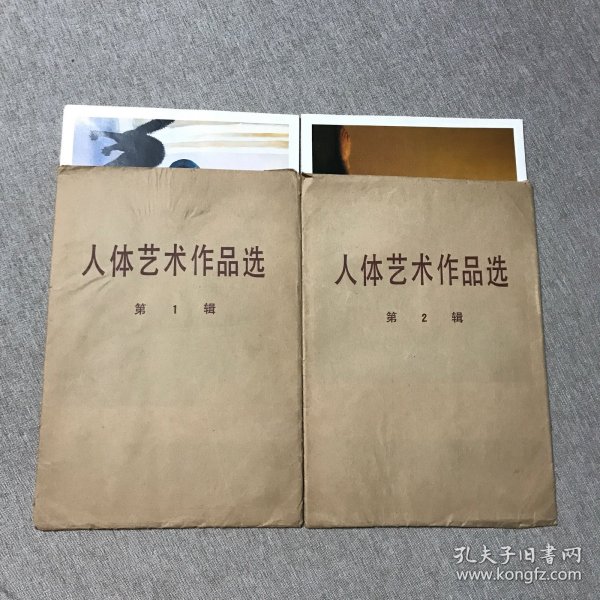 人体艺术作品选
第1辑
人体艺术作品选
第2辑
孔夫子旧书网
www.kongfz.com